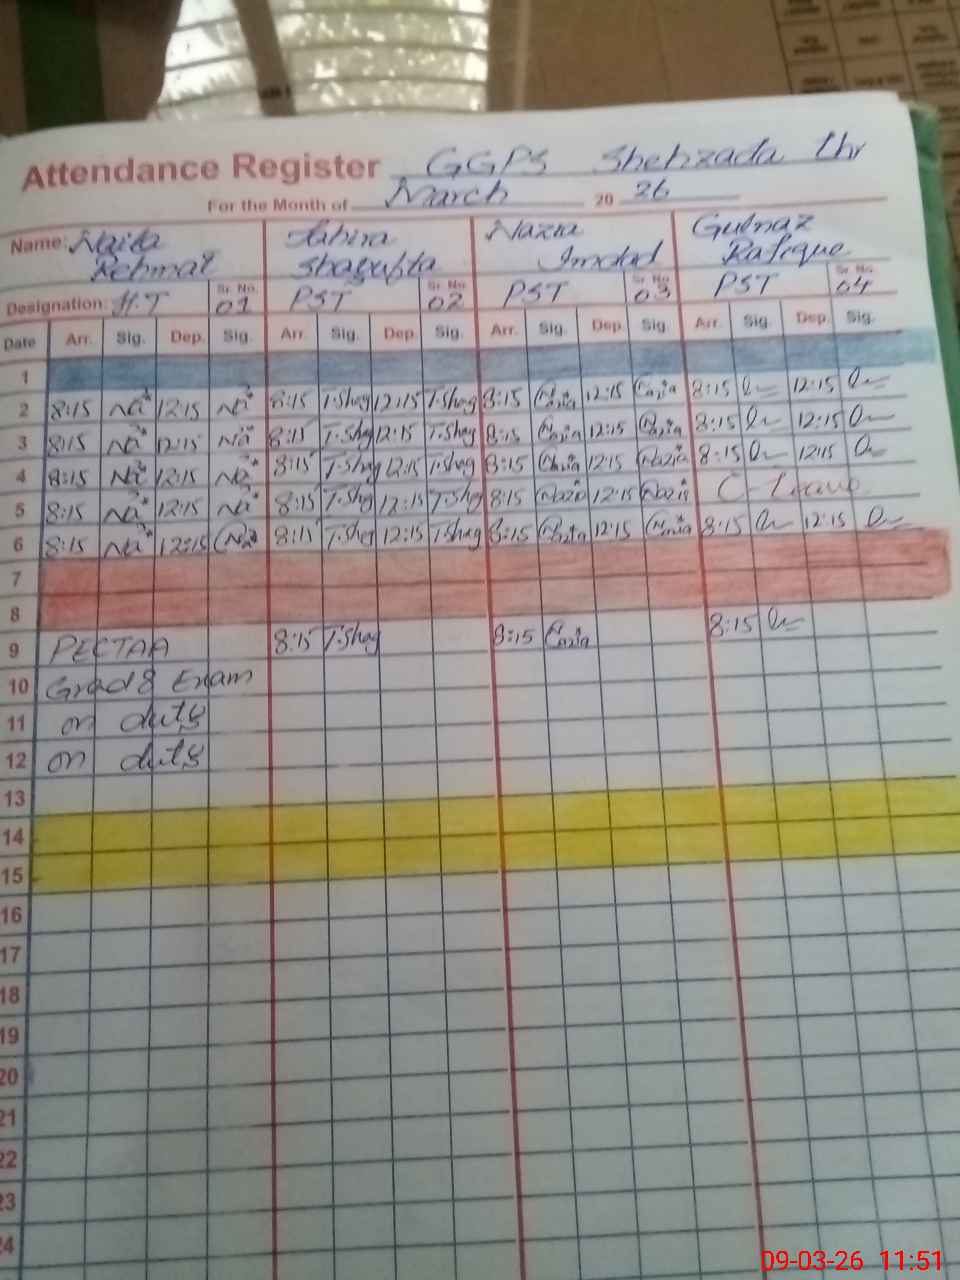 Attendance Register GGPS Shehzada Lhr
For the Month of March 20 26
Name: Naila Rehmat Tahira Shagufta Nazia Imdad Gulnaz Rafique
Designation: H.T Sr. No. 01 PST Sr. No. 02 PST Sr. No. 03 PST Sr. No. 04
Date Arr. Sig. Dep. Sig. Arr. Sig. Dep. Sig. Arr. Sig. Dep. Sig. Arr. Sig. Dep. Sig.
1
2 8:15 Na 12:15 Na 8:15 T.Shag 12:15 T.Shag 8:15 Nazia 12:15 Nazia 8:15 12:15
3 8:15 Na 12:15 Na 8:15 T.Shag 12:15 T.Shag 8:15 Nazia 12:15 Nazia 8:15 12:15
4 8:15 Na 12:15 Na 8:15 T.Shag 12:15 T.Shag 8:15 Nazia 12:15 Nazia 8:15 12:15
5 8:15 Na 12:15 Na 8:15 T.Shag 12:15 T.Shag 8:15 Nazia 12:15 Nazia C-Leave
6 8:15 Na 12:15 Na 8:15 T.Shag 12:15 T.Shag 8:15 Nazia 12:15 Nazia 8:15 12:15
7
8
9 PECTAA 8:15 T.Shag 8:15 Nazia 8:15
10 Grad 8 Exam
11 on duty
12 on duty
13
14
15
16
17
18
19
20
21
22
23
24
09-03-26 11:51